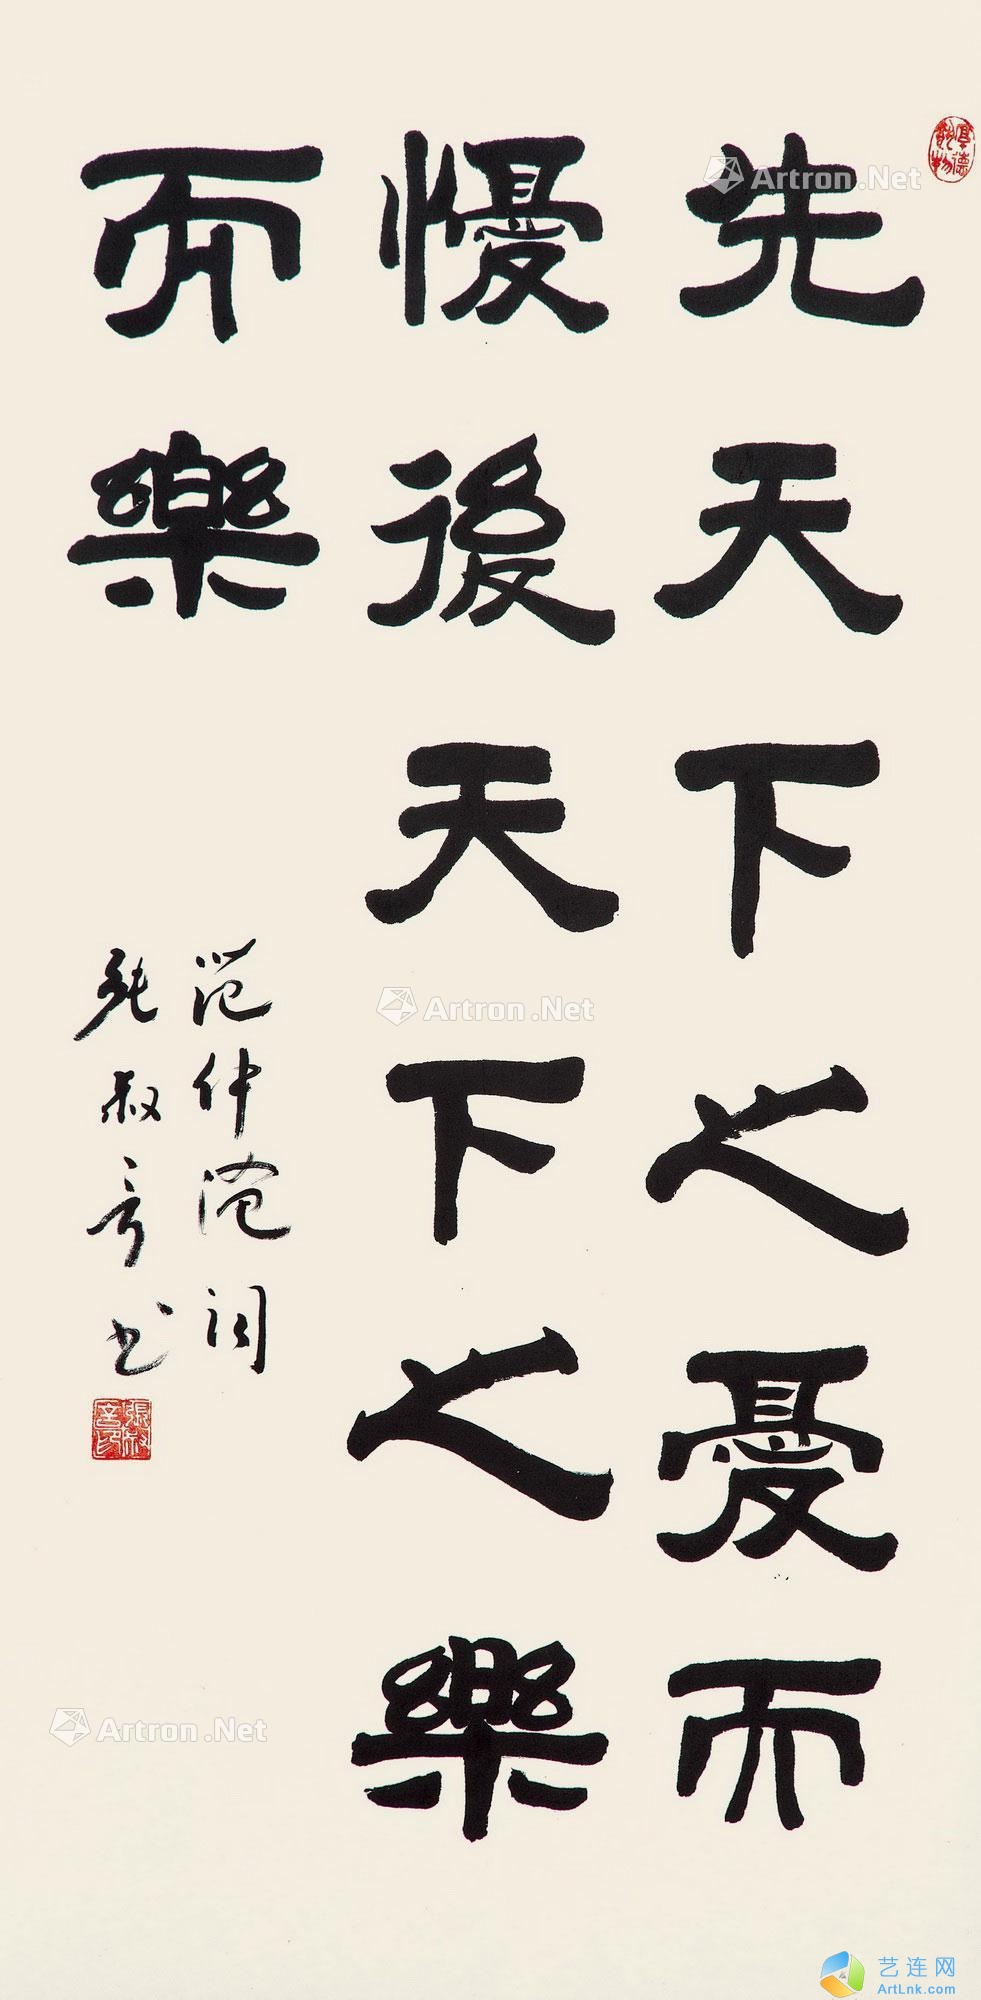 厚德載物
先天下之憂而
懮後天下之樂
而樂
范仲淹词
张叔书
Artron.Net
Artron.Net
Artron.Net
艺连网
ArtLnk.com